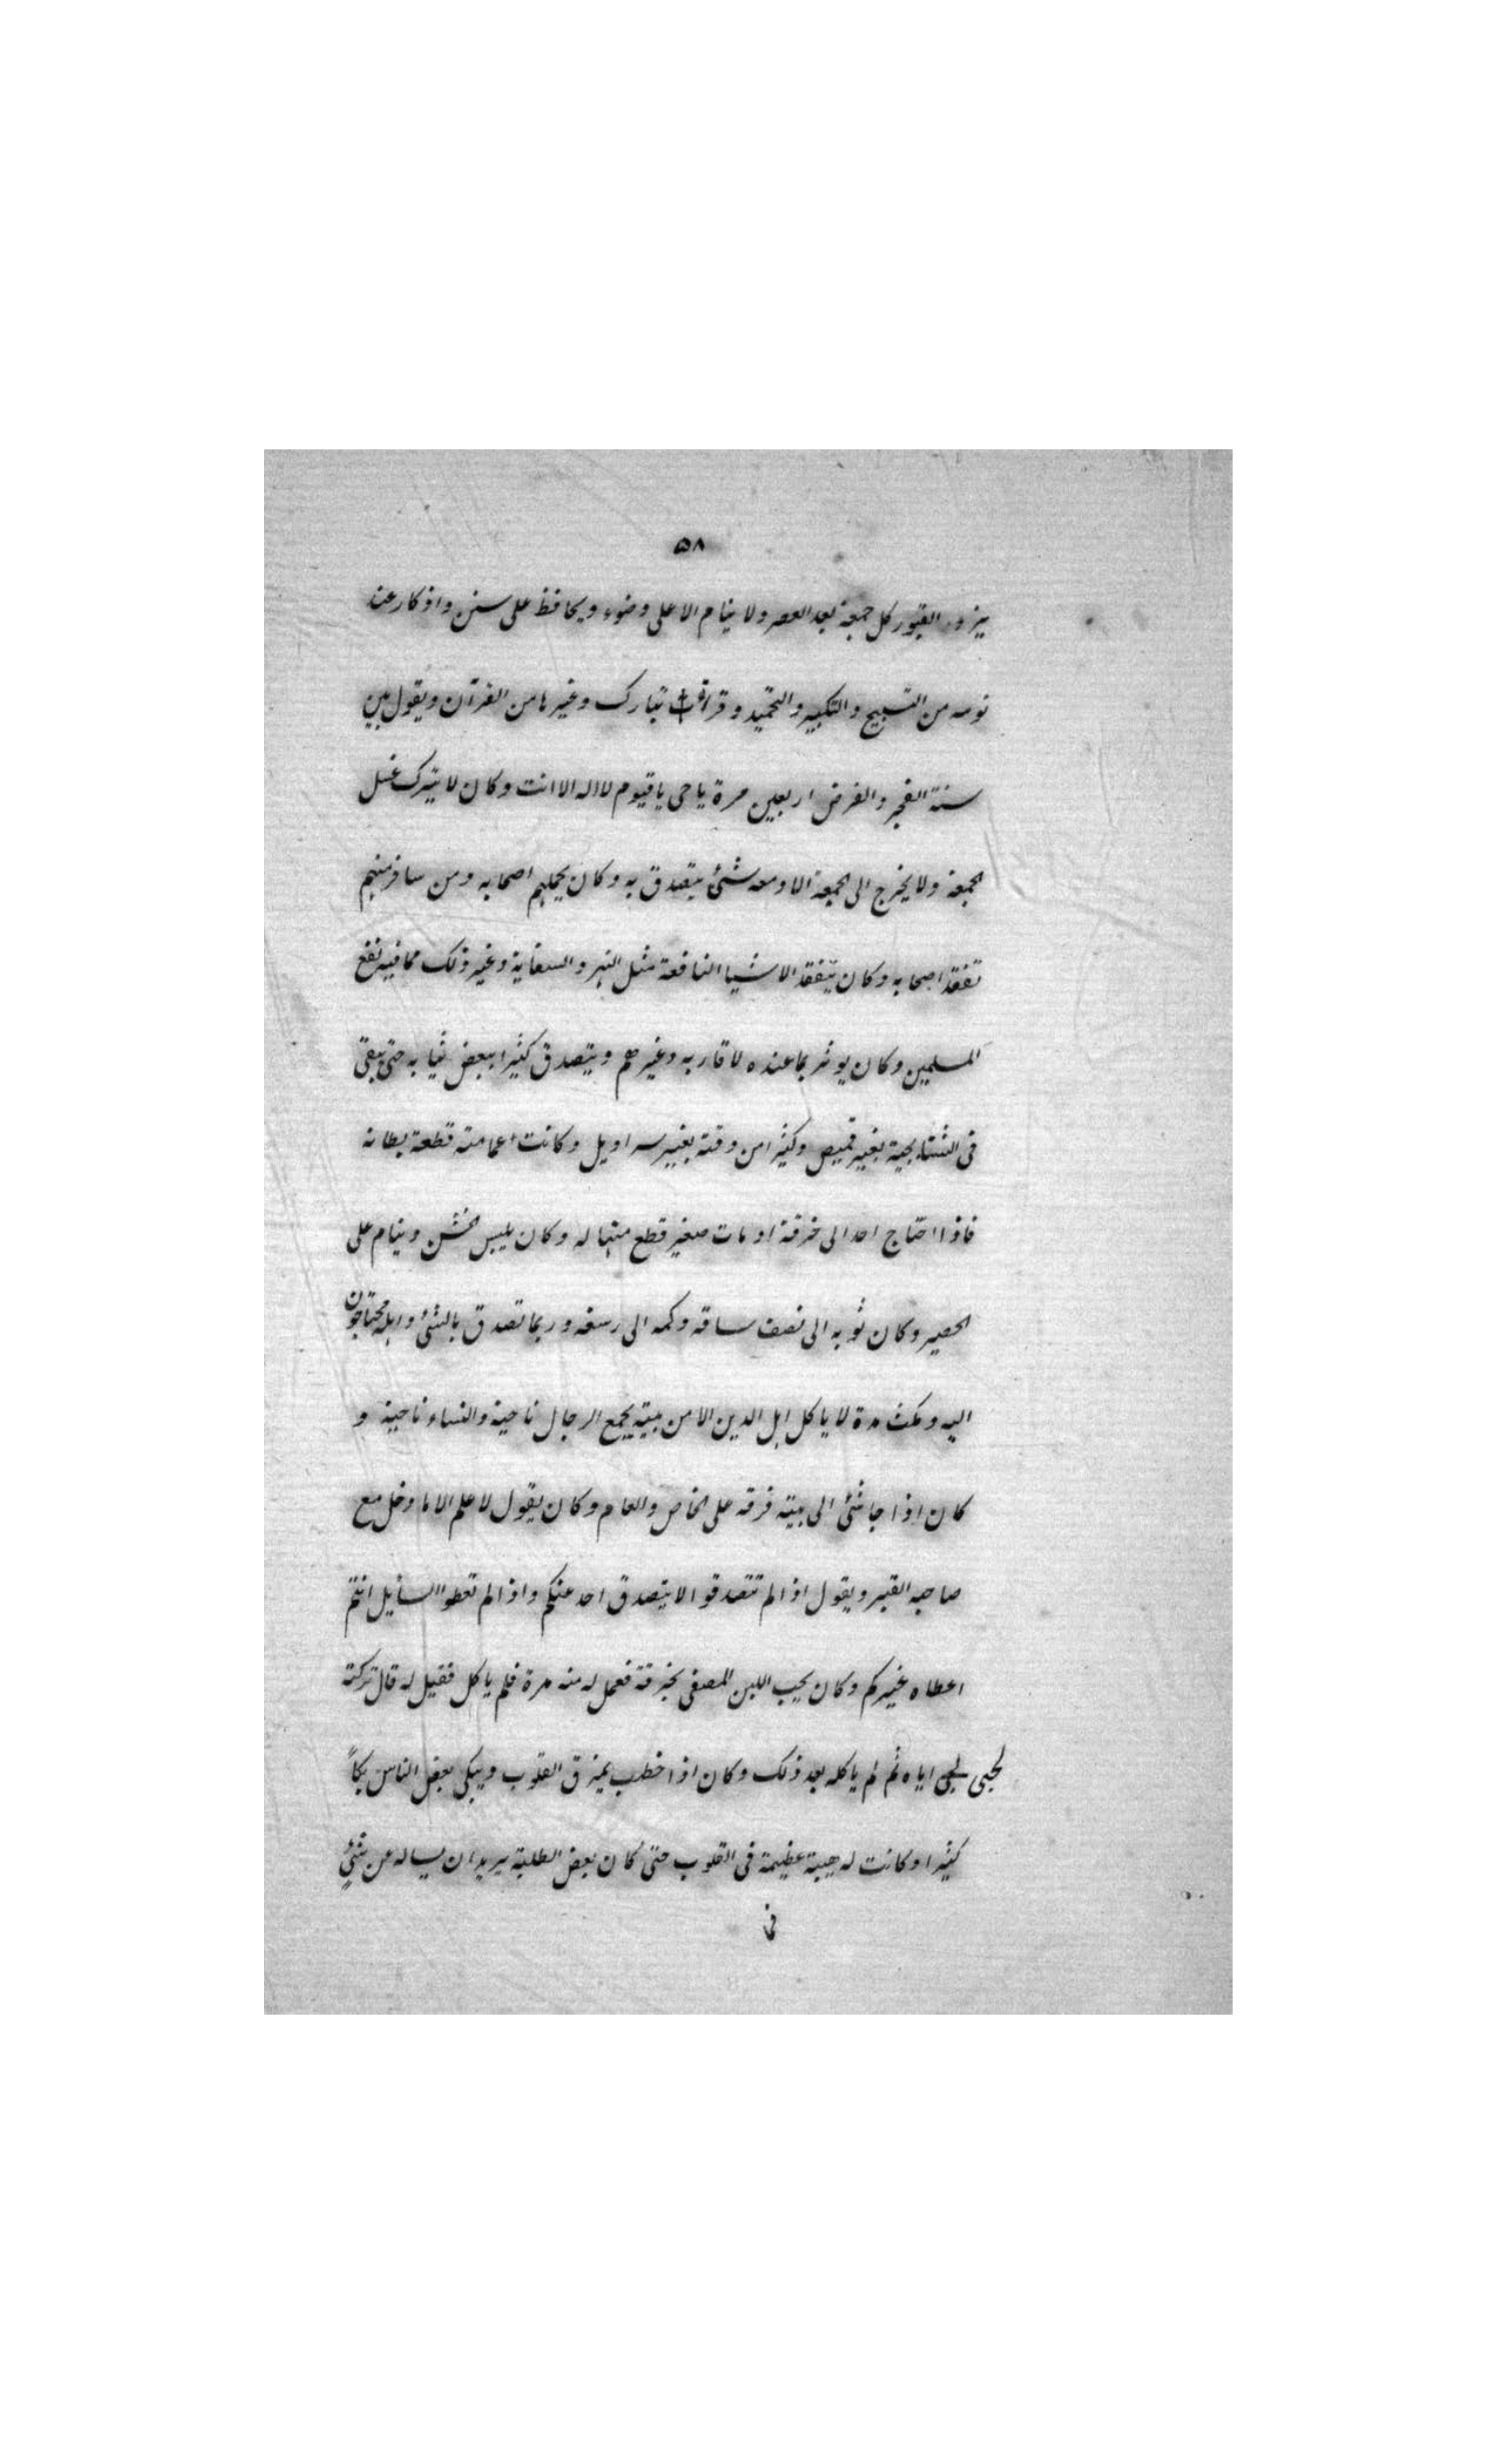 ۵۸
يزور القبور كل جمعة بعد العصر ولا ينام الا على وضوء ويحافظ على سنن واذكار عند
نومه من التسبيح والتكبير والتحميد و قراة تبارك وغيرها من القرآن ويقول بين
سنة الفجر والفرض اربعين مرة ياحى ياقيوم لااله الا انت وكان لا يترك غسل
الجمعة ولا يخرج الى الجمعة الا ومعه شئ يتصدق به وكان يحملهم اصحابه ومن سافر منهم
تفقد اصحابه وكان يتفقد الاشيا النافعة مثل النهر والسقاية وغير ذلك مما فيه نفع
المسلمين وكان يوثر بما عنده لاقاربه وغيرهم ويتصدق كثيرا ببعض ثيابه حتى يبقى
فى الشتاء بجبة بغير قميص وكثيرا من وقته بغير سراويل وكانت عمامته قطعة بطانه
فاذا احتاج احد الى خرقة او مات صغير قطع منها له وكان يلبس الخشن وينام على
الحصير وكان ثوبه الى نصف ساقه وكمه الى رسغه وربما تصدق بالشئ واهله محتاجون
اليه ومكث مدة لا ياكل اهل الدين الا من بيته يجمع الرجال ناحية والنساء ناحية و
كان اذا جا شئ الى بيته فرقه على الخاص والعام وكان يقول لا علم الا ما دخل مع
صاحبه القبر ويقول اذا لم تتصدقوا لا يتصدق احد عنكم واذا لم تعطوا السأيل انتم
اعطاه غيركم وكان يحب اللبن المصفى بخرقة فعمل له منه مرة فلم ياكل فقيل له قال تركته
لحبى اياه ثم لم ياكله بعد ذلك وكان اذا خطب يمزق القلوب ويبكى بعض الناس بكاً
كثيرا وكانت له هيبة عظيمة فى القلوب حتى كان بعض الطلبة يريد ان يساله عن شئٍ
فى